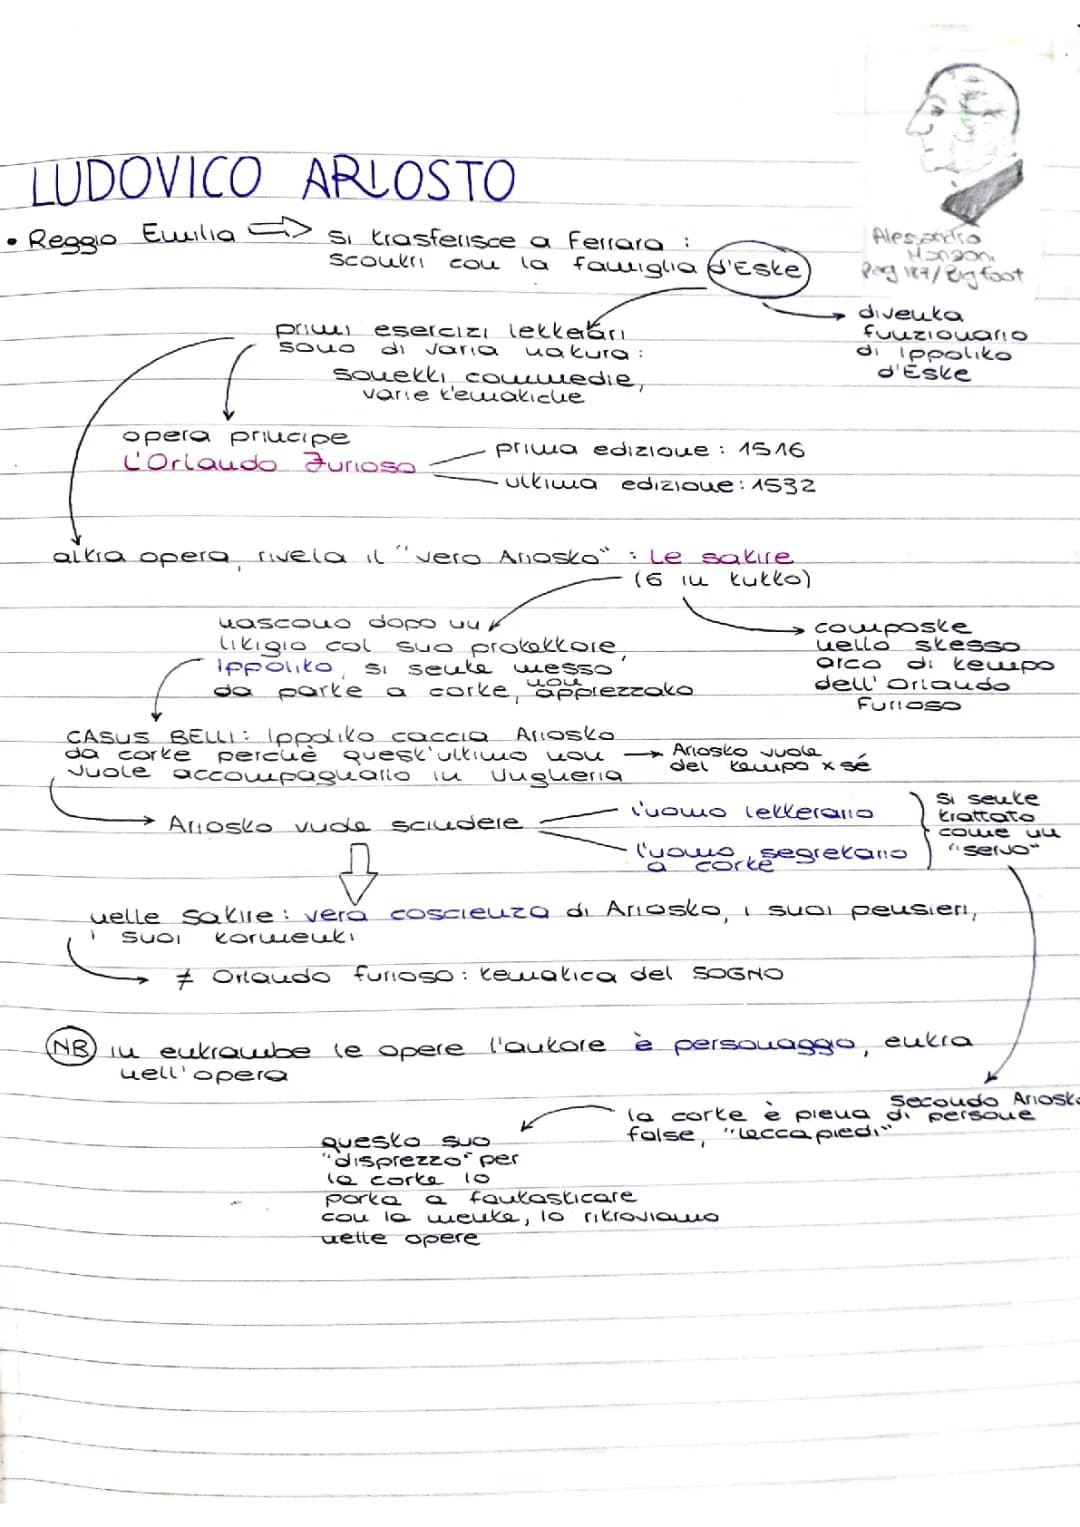 LUDOVICO ARIOSTO
• Reggio Emilia ⇒ si trasferisce a Ferrara :
scontri con la famiglia d'Este
Alessandro
Manzoni
Pag 187/Bigfoot
diventa
funzionario
di Ippolito
d'Este
primi esercizi letterari
sono di varia natura :
sonetti, commedie,
varie tematiche
opera principe
L'Orlando Furioso
prima edizione : 1516
ultima edizione : 1532
altra opera, rivela il "vero Ariosto" : Le satire
(6 in tutto)
nascono dopo un
litigio col suo protettore,
Ippolito, si sente messo
da parte a corte, non apprezzato
composte
nello stesso
arco di tempo
dell'Orlando
Furioso
CASUS BELLI : Ippolito caccia Ariosto
da corte perchè quest'ultimo non
vuole accompagnarlo in Ungheria
→ Ariosto vuole
del tempo x sé
Ariosto vuole scindere
l'uomo letterario
l'uomo segretario
a corte
si sente
trattato
come un
"servo"
nelle satire : vera coscienza di Ariosto, i suoi pensieri,
i suoi tormenti
→ ≠ Orlando furioso : tematica del SOGNO
NB in entrambe le opere l'autore è personaggio, entra
nell'opera
secondo Ariosto
la corte è piena di persone
false, "leccapiedi"
questo suo
"disprezzo" per
la corte lo
porta a fantasticare
con la mente, lo ritroviamo
nelle opere